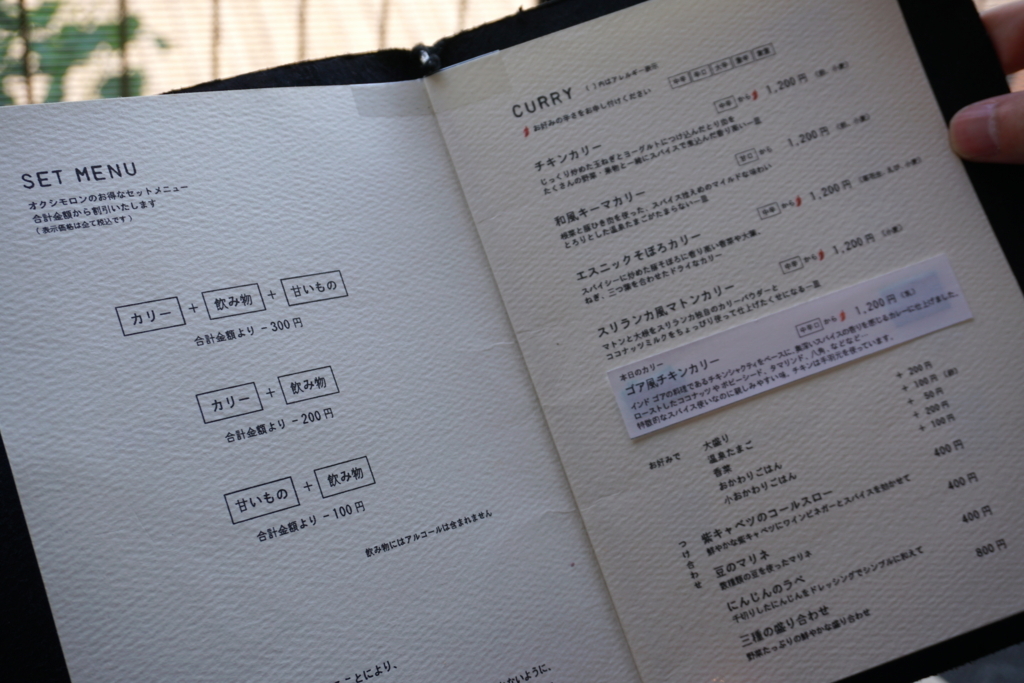 SET MENU
オクシモロンのお得なセットメニュー
合計金額から割引いたします
(表示価格は全て税込です)
カリー + 飲み物 + 甘いもの
合計金額より －300 円
カリー + 飲み物
合計金額より －200 円
甘いもの + 飲み物
合計金額より －100 円
飲み物にはアルコールは含まれません
ことにより、
ないように、
CURRY ( )内はアレルギー表示
お好みの辛さをお申し付けください
チキンカリー 中辛 から 1,200 円 (卵、小麦)
じっくり炒めた玉ねぎとヨーグルトにつけ込んだとり肉を
たくさんの野菜・果物と一緒にスパイスで煮込んだ香り高い一皿
和風キーマカリー 甘口 から 1,200 円 (卵、小麦)
根菜と豚ひき肉を使った、スパイス控えめのマイルドな味わい
とろりとした温泉たまごがたまらない一皿
エスニックそぼろカリー 中辛 から 1,200 円
スパイシーに炒めた豚そぼろに香り高い香菜や大葉、
ねぎ、三つ葉を合わせたドライなカリー
スリランカ風マトンカリー 中辛 から 1,200 円 (小麦)
マトンと大根をスリランカ独自のカリーパウダーと
ココナッツミルクをちょっぴり使って仕上げたくせになる一皿
本日のカリー
ゴア風チキンカリー から 1,200 円
インド ゴアの料理であるチキンシャクティをベースに、奥深いスパイスの香りを感じるカレーに仕上げました。
ローストしたココナッツやポピーシード、タマリンド、八角、などなど…
特徴的なスパイス使いなのに親しみやすい味。チキンは手羽元を使っています。
お好みで 大盛り + 200 円
温泉たまご + 100 円 (卵)
香菜 + 50 円
おかわりごはん + 200 円
小おかわりごはん + 100 円
つけ合わせ
紫キャベツのコールスロー 400 円
鮮やかな紫キャベツにワインビネガーとスパイスを効かせて
豆のマリネ 400 円
数種類の豆を使ったマリネ
にんじんのラペ 400 円
千切りしたにんじんをドレッシングでシンプルに和えて
三種の盛り合わせ 800 円
野菜たっぷりの鮮やかな盛り合わせ